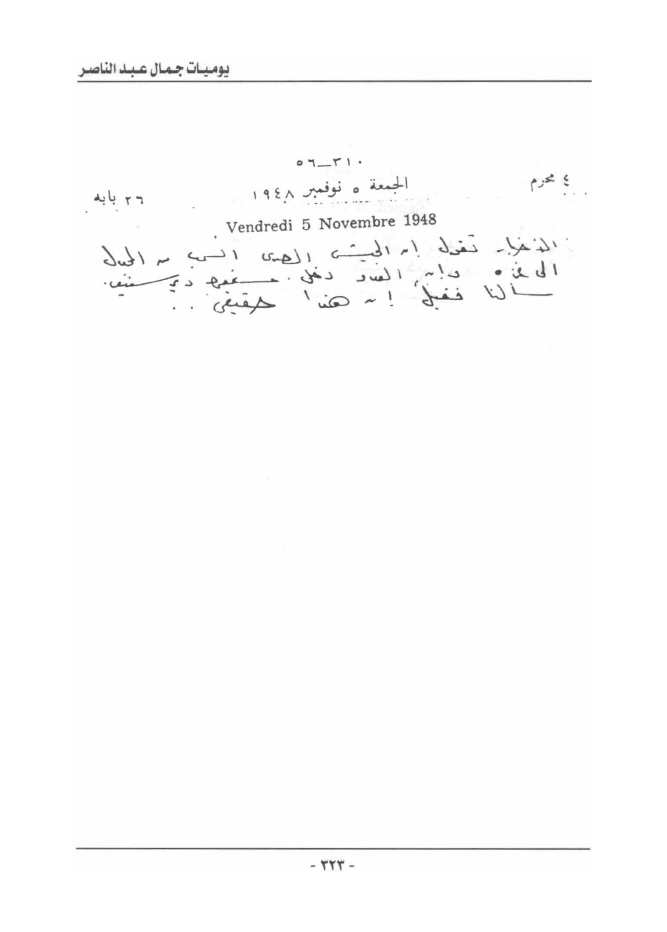 يوميات جمال عبد الناصر
٣١٠ــ٥٦
٤ محرم
الجمعة ٥ نوفمبر ١٩٤٨
٢٦ بابه
Vendredi 5 Novembre 1948
الأخبار تقول إن الجيش المصرى انسحب من المجدل
الى غزه وإن العدو دخل
سألنا فقيل إن هذا حقيقى . .
- ٣٢٣ -